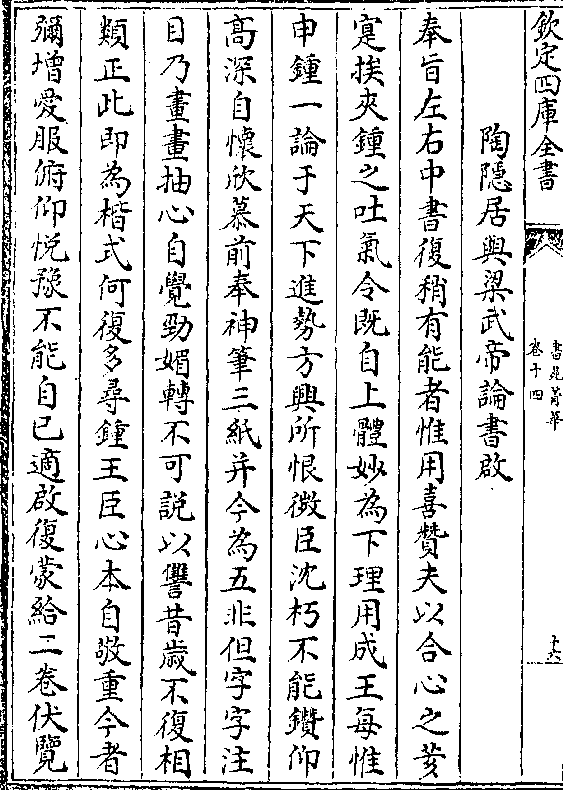 欽定四庫全書
書苑菁華
卷十四
十六
陶隠居與梁武帝論書啟
奉旨左右中書復稍有能者惟用喜贊夫以含心之荄
寔挨夾鍾之吐氣令既自上體妙為下理用成王每惟
申鍾一論于天下進勢方興所恨微臣沈朽不能鑽仰
髙深自懐欣慕前奉神筆三紙并今為五非但字字注
目乃畫畫抽心自覺勁媚轉不可説以讐昔歲不復相
類正此即為楷式何復多尋鍾王臣心本自敬重今者
彌增愛服俯仰悦豫不能自已適啟復蒙給二卷伏覽